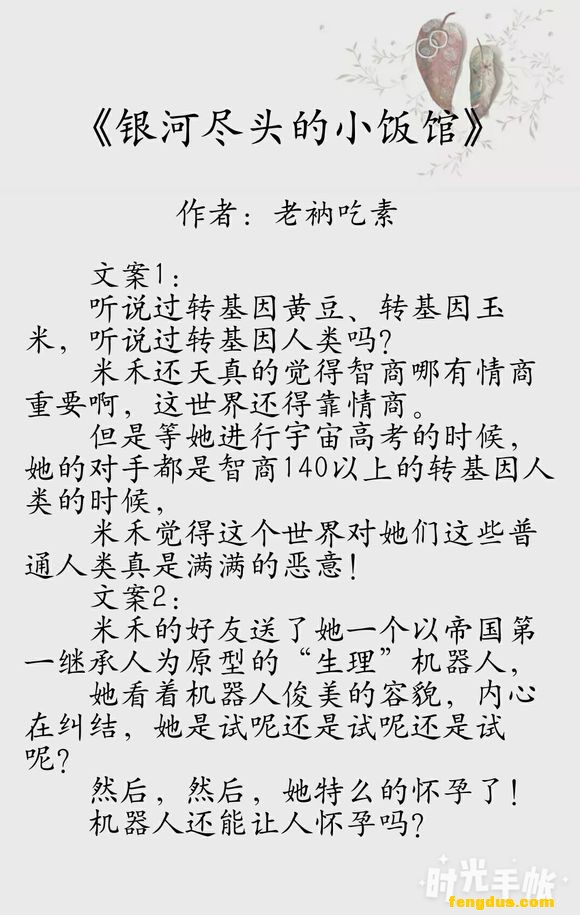 《银河尽头的小饭馆》
作者：老衲吃素
文案1：
听说过转基因黄豆、转基因玉
米，听说过转基因人类吗？
米禾还天真的觉得智商哪有情商
重要啊，这世界还得靠情商。
但是等她进行宇宙高考的时候，
她的对手都是智商140以上的转基因人
类的时候，
米禾觉得这个世界对她们这些普
通人类真是满满的恶意！
文案2：
米禾的好友送了她一个以帝国第
一继承人为原型的“生理”机器人，
她看着机器人俊美的容貌，内心
在纠结，她是试呢还是试呢还是试
呢？
然后，然后，她特么的怀孕了！
机器人还能让人怀孕吗？
时光手帐
fengdus.com